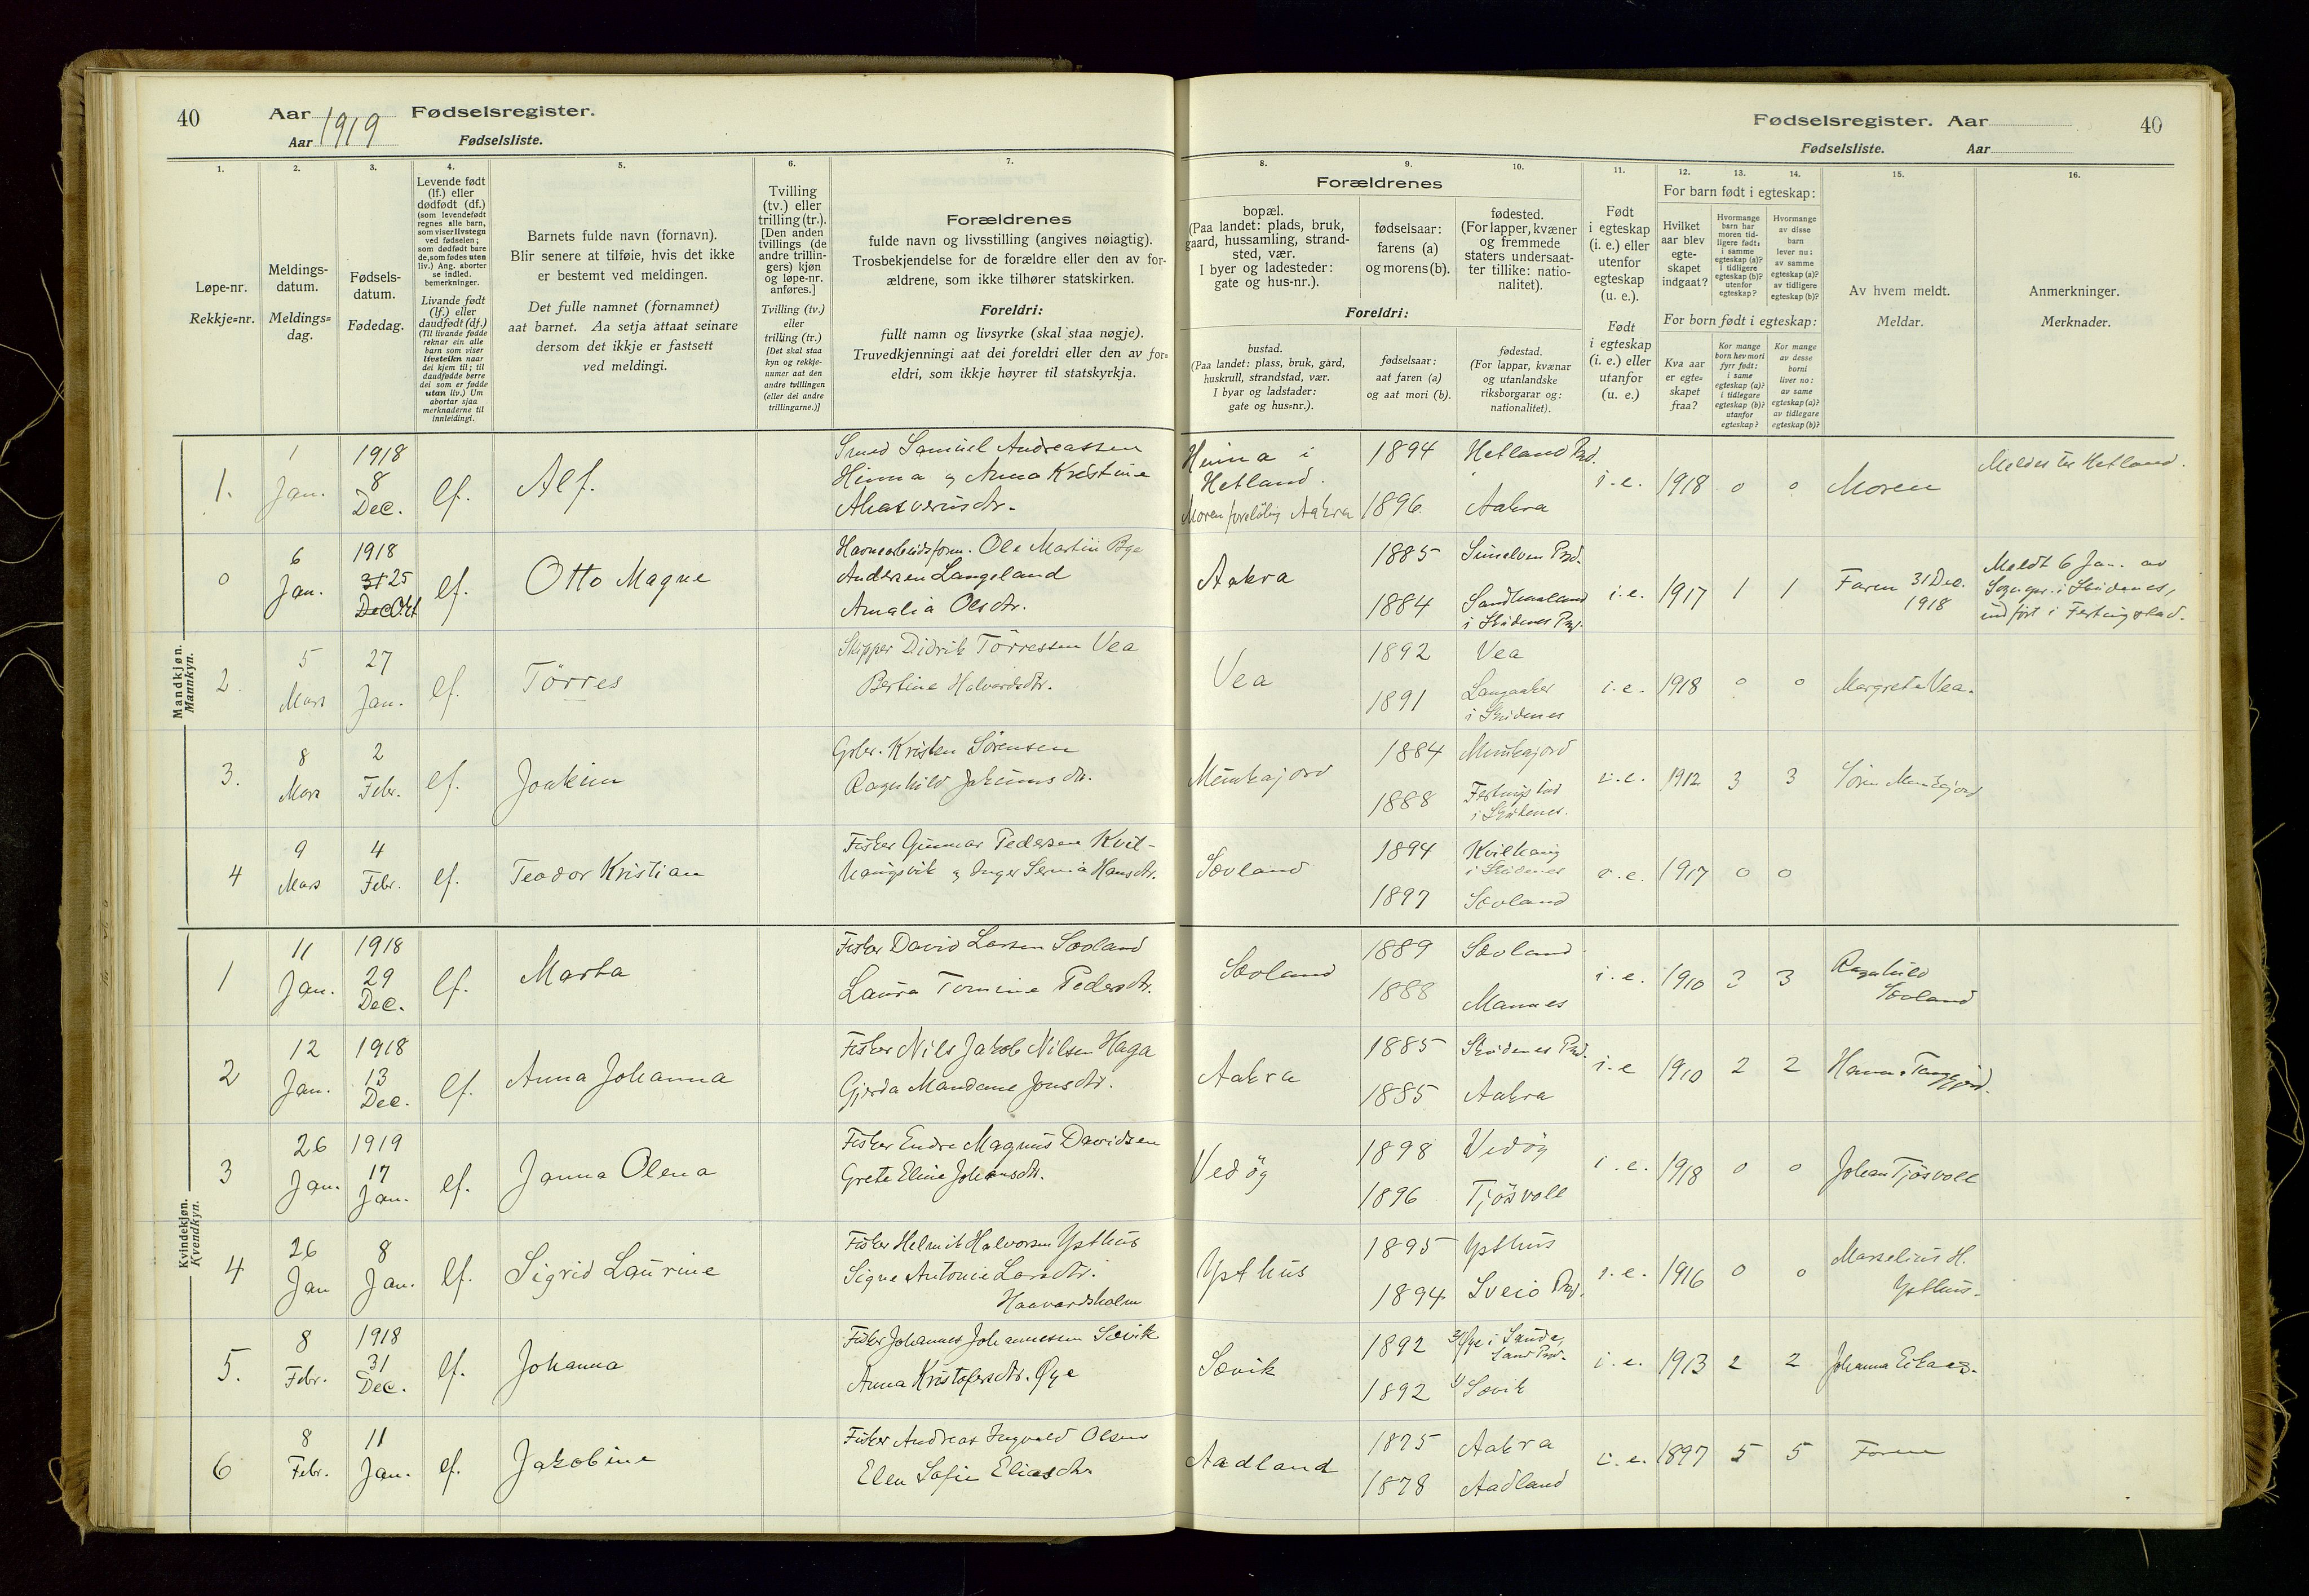 40
Aar 1919 Fødselsregister.
Aar Fødselsliste.
1.
2.
3.
4.
5.
6.
7.
Løpe-nr.
Rekkje=nr.
Meldings-
datum.
Meldings=
dag.
Fødsels-
datum.
Fødedag.
Levende født
(lf.) eller
dødfødt (df.)
(som levendefødt
regnes alle barn,
som viser livstegn
ved fødselen;
som dødfødt bare
de, som fødes uten
liv.) Ang. aborter
se indled.
bemerkninger.
Livande født
(lf.) eller
daudfødt (df.)
(Til livande fødde
reknar ein alle
barn som viser
livsteikn naar
dei kjem til; til
daudfødde berre
dei som er fødde
utan liv.) Um
abortar sjaa
merknaderne til
innleidingi.
Barnets fulde navn (fornavn).
Blir senere at tilføie, hvis det ikke
er bestemt ved meldingen.
Det fulle namnet (fornamnet)
aat barnet. Aa setja attaat seinare
dersom det ikkje er fastsett
ved meldingi.
Tvilling
(tv.) eller
trilling (tr.).
[Den anden
tvillings (de
andre trillin-
gers) kjøn
og løpe-nr.
anføres.]
Tvilling (tv.)
eller
trilling (tr.)
[Det skal staa
kyn og rekkje-
numer aat den
andre tvillingen
(eller dei andre
trillingarne.)]
Forældrenes
fulde navn og livsstilling (angives nøiagtig).
Trosbekjendelse for de forældre eller den av for-
ældrene, som ikke tilhører statskirken.
Foreldri:
fullt namn og livsyrke (skal staa nøgje).
Truvedkjenningi aat dei foreldri eller den av for=
eldri, som ikkje høyrer til statskyrkja.
Mandkjøn.
Mannkyn.
1. 1 Jan. 1918 8 Dec. lf. Alf. Smed Samuel Andreassen
Hinna og Anna Kristine
Ahasverusdtr.
0 6 Jan. 1918 31 25 Dec Okt lf. Otto Magne Havnearbeidsform. Ole Martin Bye
Andersen Langeland
Amalia Olsdtr.
2. 5 Mars 27 Jan. lf. Törres Skipper Didrik Törressen Vea
Bertine Halvardsdtr.
3. 8 Mars 2 Febr. lf. Joakim Gbr. Kristen Sørensen
Ragnhild Jakimsdtr.
4 9 Mars 4 Febr. lf. Teodor Kristian Fisker Gunnar Pedersen Kvil-
haugsvik og Inger Serina Hansdtr.
Kvindekjøn.
Kvendkyn.
1 11 Jan. 1918 29 Dec. lf. Marta Fisker David Larsen Sævland
Laura Tomine Pedersdtr.
2 12 Jan. 1918 13 Dec. lf. Anna Johanna Fisker Nils Jakob Nilsen Haga
Gjerda Mandane Jonsdtr.
3 26 Jan. 1919 17 Jan. lf. Janna Olena Fisker Endre Magnus Davidsen
Grete Eline Johansdtr.
4 26 Jan 8 Jan. lf. Sigrid Laurine Fisker Helmik Halvorsen Ysthus
Signe Antonie Larsdtr.
Haavardsholm
5. 8 Febr. 1918 31 Dec. lf. Johanna Fisker Johannes Johannesen Sævik
Anna Kristofersdtr. Øye
6 8 Febr. 11 Jan. lf. Jakobine Fisker Andreas Ingvald Olsen
Elen Sofie Eliasdtr
Fødselsregister. Aar
40
Fødselsliste. Aar
8.
9.
10.
11.
12.
13.
14.
15.
16.
Forældrenes
bopæl.
(Paa landet: plads, bruk,
gaard, hussamling, strand-
sted, vær.
I byer og ladesteder:
gate og hus-nr.).
fødselsaar:
farens (a)
og morens (b).
fødested.
(For lapper, kvæner
og fremmede
staters undersaat-
ter tillike: natio-
nalitet).
Foreldri:
bustad.
(Paa landet: plass, bruk, gard,
huskrull, strandstad, vær.
I byar og ladstader:
gate og hus=nr.).
fødselsaar:
aat faren (a)
og aat mori (b).
fødestad.
(For lappar, kvænar
og utanlandske
riksborgarar og:
nationalitet).
Født
i egteskap
(i. e.) eller
utenfor
egteskap
(u. e.).
Født
i egteskap
(i. e.) eller
utanfor
(u. e.)
For barn født i egteskap:
Hvilket
aar blev
egte-
skapet
indgaat?
Hvormange
barn har
moren tid-
ligere født:
i samme
egteskap (a)?
i tidligere
egteskap (b)?
utenfor
egteskap?
Hvormange
av disse
barn
lever nu:
av samme
egteskap (a)?
av tidligere
egteskap (b)?
For born født i egteskap:
Kva aar
er egte=
skapet
fraa?
Kor mange
born hev mori
fyrr født:
i same
egteskap (a)?
i tidlegare
egteskap (b)?
utanfor
egteskap?
Kor mange
av desse
borni
liver no:
av same
egteskap (a)?
av tidlegare
egteskap (b)?
Av hvem meldt.
Meldar.
Anmerkninger.
Merknader.
Hinna i
Hetland.
Moren foreløbig Aakra 1894 1896 Hetland Prd. Aakra i. e. 1918 0 0 Moren Meldes til Hetland.
Aakra 1885 1884 Sunelven Prd. Sandhaaland
i Skudenes Prd. i. e. 1917 1 1 Faren 31 Dec.
1918 Meldt 6 Jan. av
Sogepr. i Skudenes,
indført i Ferkingstad.
Vea 1892 1891 Vea Langaaker
i Skudenes i. e. 1918 0 0 Margreta Vea.
Munkajord 1884 1888 Munkajord Ferkingstad
i Skudenes. i. e. 1912 3 3 Sören Munkejord
Sævland 1894 1897 Kvilhaug
i Skudenes Sævland i. e. 1917 0 0
Sævland 1889 1888 Sævland Mannes i. e. 1910 3 3 Ragnhild
Sævland
Aakra 1885 1885 Skudenes Prd. Aakra i. e 1910 2 2 Hanna Tangjerd.
Vedög 1898 1896 Vedög Tjösvoll i. e. 1918 0 0 Johan Tjösvoll
Ysthus 1895 1894 Ysthus Sveio Prd. i. e. 1916 0 0 Marselius H.
Ysthus.
Sævik 1892 1892 Øye i Sande,
Sand Prd. Sævik i. e. 1913 2 2 Johanna Eikaas.
Aadland 1875 1878 Aakra Aadland i. e. 1897 5 5 Faren